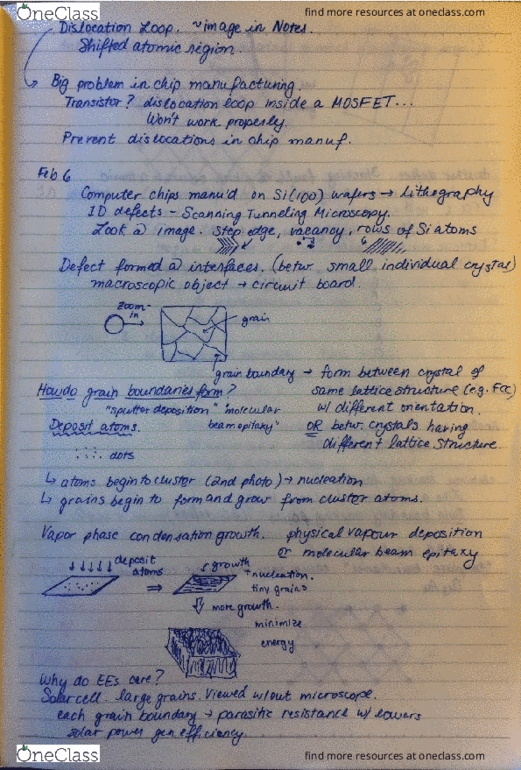 OneClass
find more resources at oneclass.com
Dislocation Loop. ~image in Notes.
Shifted atomic region.
Big problem in chip manufacturing.
Transistor? dislocation loop inside a MOSFET...
Won't work properly.
Prevent dislocations in chip manuf.
Feb 6
Computer chips manu'd on Si(100) wafers → Lithography
1D defects - Scanning Tunneling Microscopy.
Look @ image. Step edge, vacancy, rows of Si atoms
Defect formed @ interfaces. (betw small individual crystal)
macroscopic object → circuit board.
zoom-in → grain
grain boundary → form between crystal of
same lattice structure (e.g. FCC)
w/ different orientation.
OR betw. crystals having
different lattice structure.
How do grain boundaries form?
"sputter deposition" "molecular
beam epitaxy"
Deposit atoms.
dots
↳ atoms begin to clustor (2nd photo) → nucleation
↳ grains begin to form and grow from cluster atoms.
Vapor phase condensation growth. physical vapour deposition
or molecular beam epitaxy
deposit
atoms
growth
+nucleation.
tiny grains
more growth.
minimize
energy
Why do EEs care?
Solar cell. large grains. Viewed w/out microscope.
each grain boundary → parasitic resistance w/ lowers
solar power gen efficiency.
OneClass
find more resources at oneclass.com